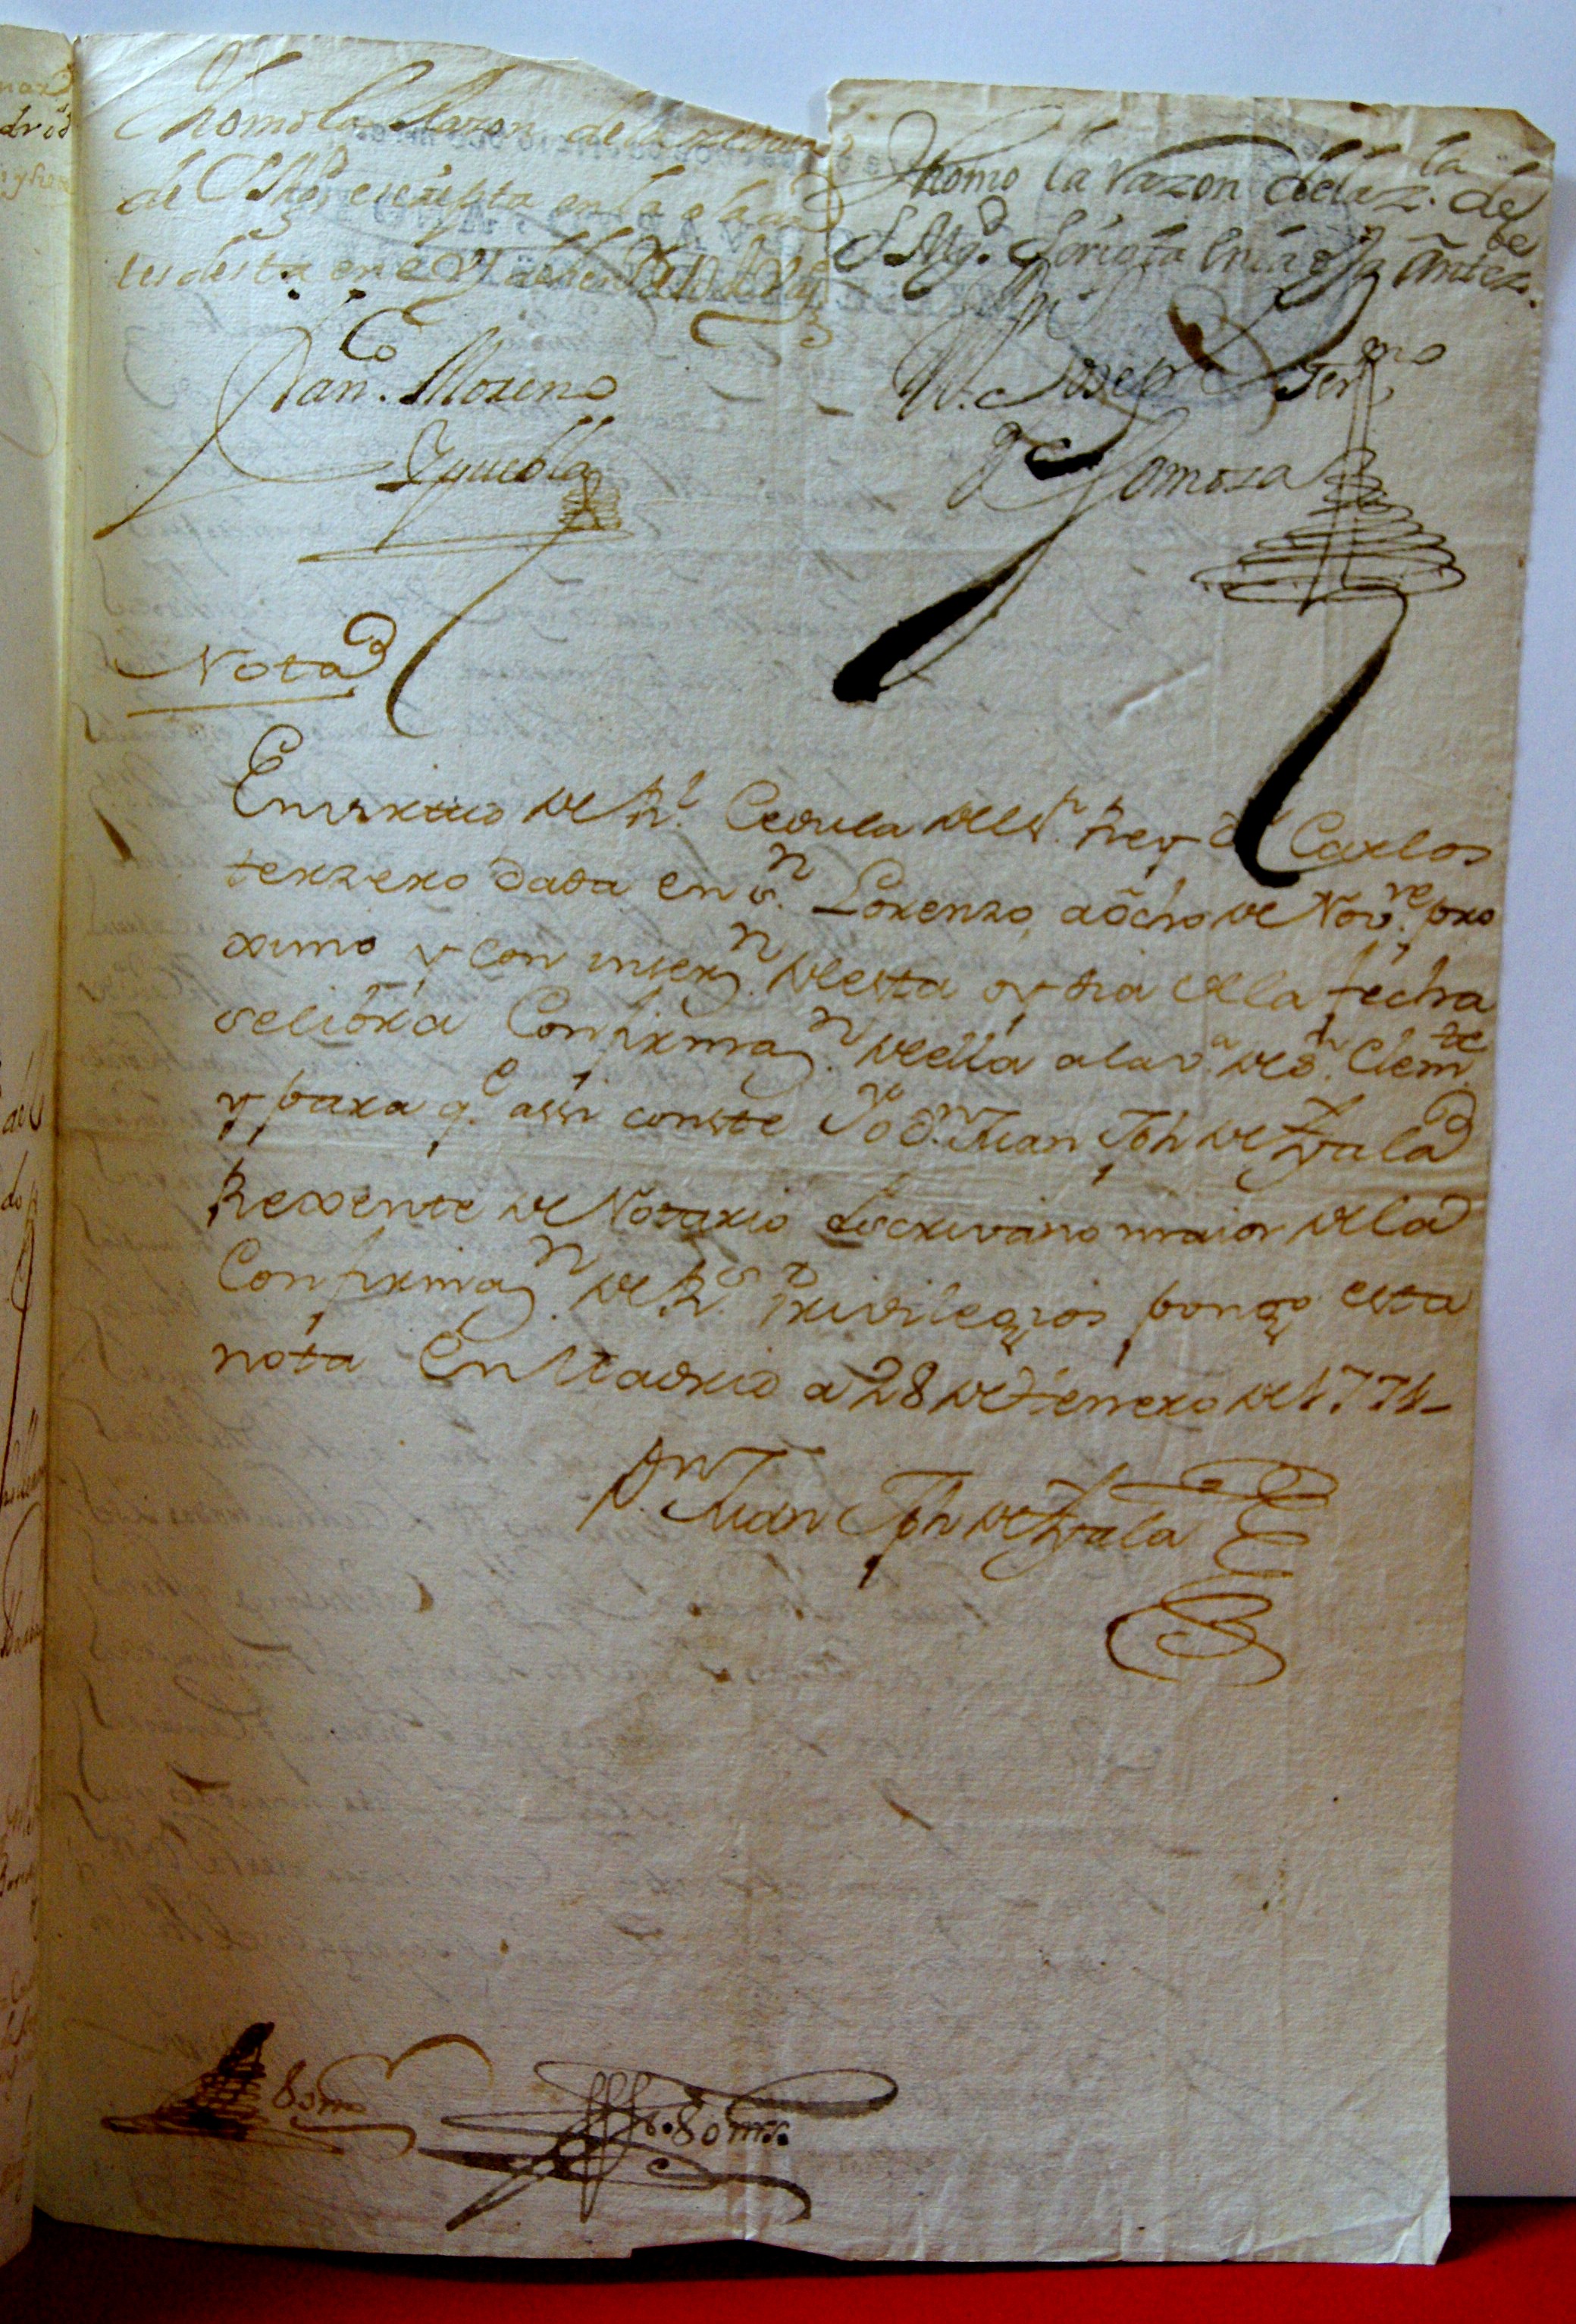 Thomó la Razon de la zedula
de S Mgd. escripta en la
Thomo la razon de la z.la de
S Mgd. Scripta en la antez.te
Fran.co Moreno
D.n Josep Fer.no
de Somoza
Nota
En virttud de R.l Cedula del S.r Rey D.n Carlos
terzero dada en S.n Lorenzo, a ocho de Nov.re pro
ximo y con inserz.n de esta oy dia de la fecha
se libra Confirmaz.n de ella a la v.a de S.n Clem.te
y para q.e assi conste Yo D.n Juan Jph de Zvala
Rexente de Notario Escrivano maior de la
Confirmaz.n de R.s Privilegios pongo esta
nota En Madrid a 28 de Henero de 1774
D.n Juan Jph de Zvala
80 m
80 mrs.